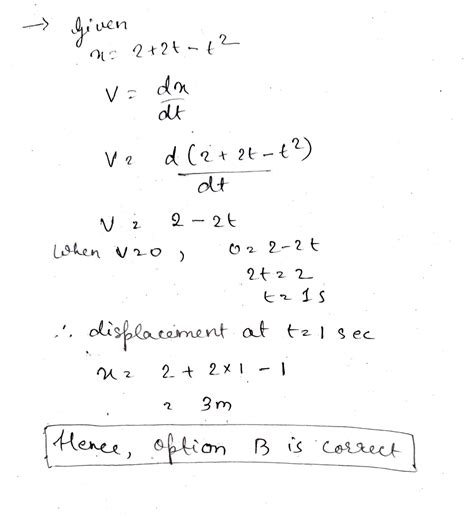 → Given
x = 2 + 2t - t²
V = dx/dt
V = d(2 + 2t - t²)/dt
V = 2 - 2t
When V = 0, 0 = 2 - 2t
2t = 2
t = 1 s
∴ displacement at t = 1 sec
x = 2 + 2×1 - 1
= 3m
Hence, option B is correct